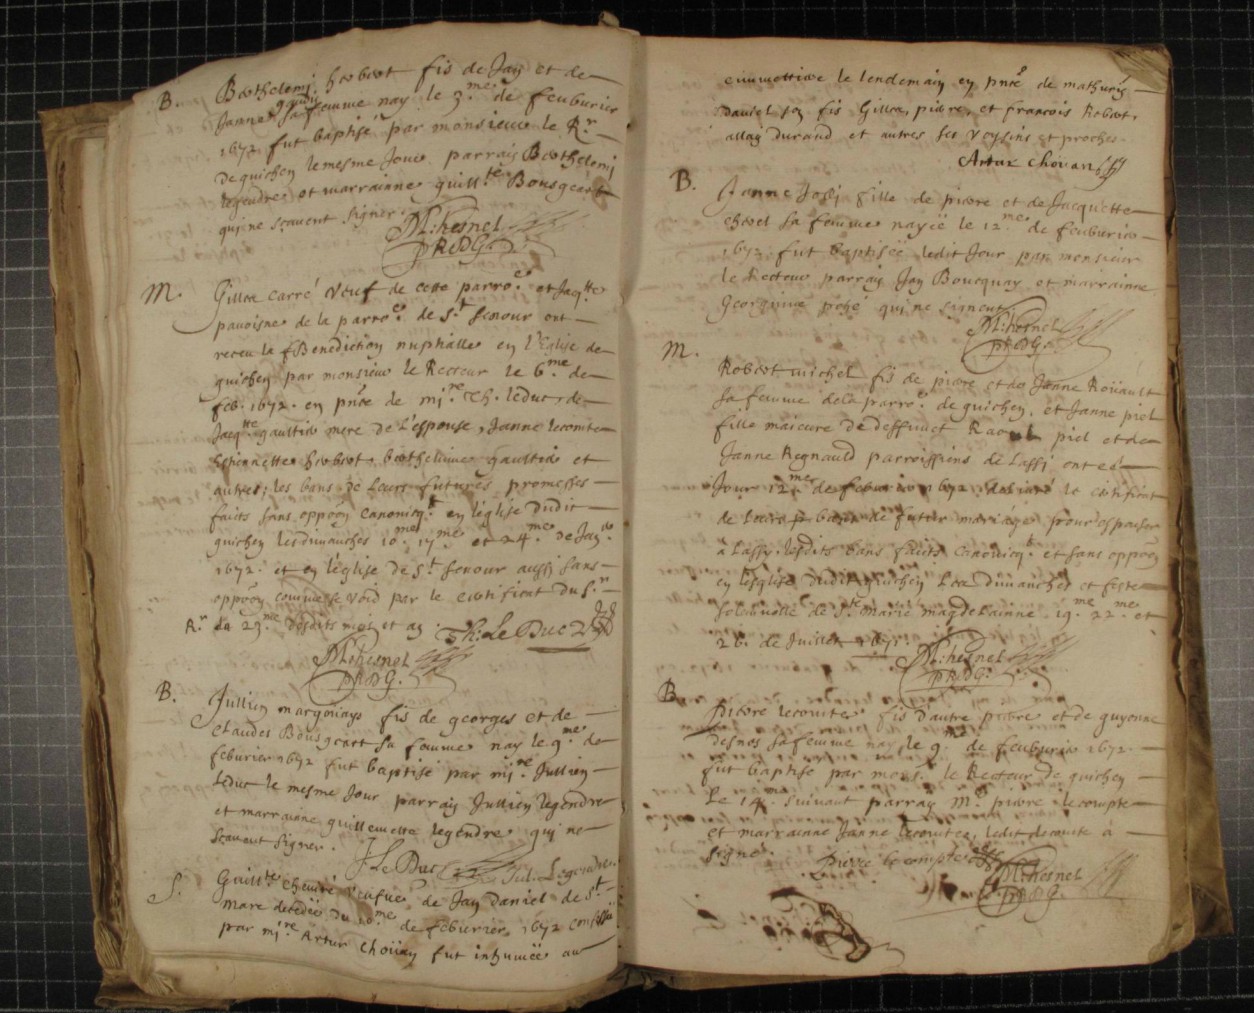 B. Berthelemi herbert fis de Jan et de
Janne sa femme nay le 3.me de feuburier
1672 fut baptisé par monsieur le Rr
de guichen le mesme Jour parrain Berthelemi
legendre et marrainne guill.te Bousgeart
qui ne scavent signer.
M:hesnel
PRDG.
M. Gilles carré veuf de cette parroe. et Jacqtte
pavoisne de la parroe. de St Senour ont
receu la Benediction nuphalle en l'Eglise de
guichen par monsieur le Recteur le 6.me de
feb. 1672. en pnce de mire Th. leduc, de
Jacqtte gaultier mere de l'espouse, Janne lecomte
Estiennette herbert, berthelinne gaultier et
autres; les bans de leurs futures promesses
faits sans oppoon canonicqt en l'église dudit
guichen les dimanches 10.me 17.me et 24.me de Janr
1672. et en l'église de St. Senour aussi sans
oppoon comme se void par le certificat du Sr
Rr du 29.me desdits mois et an. Th: Le Duc
M:hesnel
PRDG.
B. Jullien margouays fis de georges et de
claudes Bousgeart sa femme nay le 9.me de
feburier 1672 fut baptisé par mire. Jullien
leduc le mesme Jour parrain Jullien legendre
et marrainne guillemette legendre qui ne
scavent signer. J Le Duc Jul. Legendre
S. Guillte chevré veufve de Jan Daniel de St
marc decedée du 10.me de feburier 1672 confessée
par mire Artur Choüan fut inhumée au
cimmettiere le lendemain en pnce de mathurin
Daniel son fis Gilles, pierre, et francois Robert,
allan Durand et autres ses voysins et proches.
Artur Chouan
B. Janne Joßi fille de pierre et de Jacquette
cherel sa femme nayëe le 12.me de feuburier
1672. fut baptisëe ledit Jour par monsieur
le Recteur parrain Jan Boucquay et marrainne
Georginne qui ne signent
M:hesnel
PRDG.
M. Robert michel fis de pierre et de Janne Roüault
sa femme de la parroe. de guichen, et Janne piel
fille maieure de deffunct Raoul piel et de
Janne Regnauld parroissiens de Lassi ont ce
Jour 12.me de feburier 1672. le certificat
de leurs bans de futur mariage pour espouser
à Lassi, lesdits bans faits canonicqt. et sans oppoon
en l'esglise dudit guichen Les dimanches et feste
solemnelle de Ste. Marie magdelainne 19. 22.me et
26.me de Juillet 1671.
M:hesnel
PRDG.
B. pierre lecomte fis d'autre pierre et de guyonne
desnos sa femme nay le 9.me de feuburier 1672.
fut baptisé par monsr. le Recteur de guichen
Le 14.me suivant parrain Me. pierre lecompte
et marrainne Janne lecomte, ledit lecomte à
signé. Pierre Lecompte
M:hesnel
PRDG.